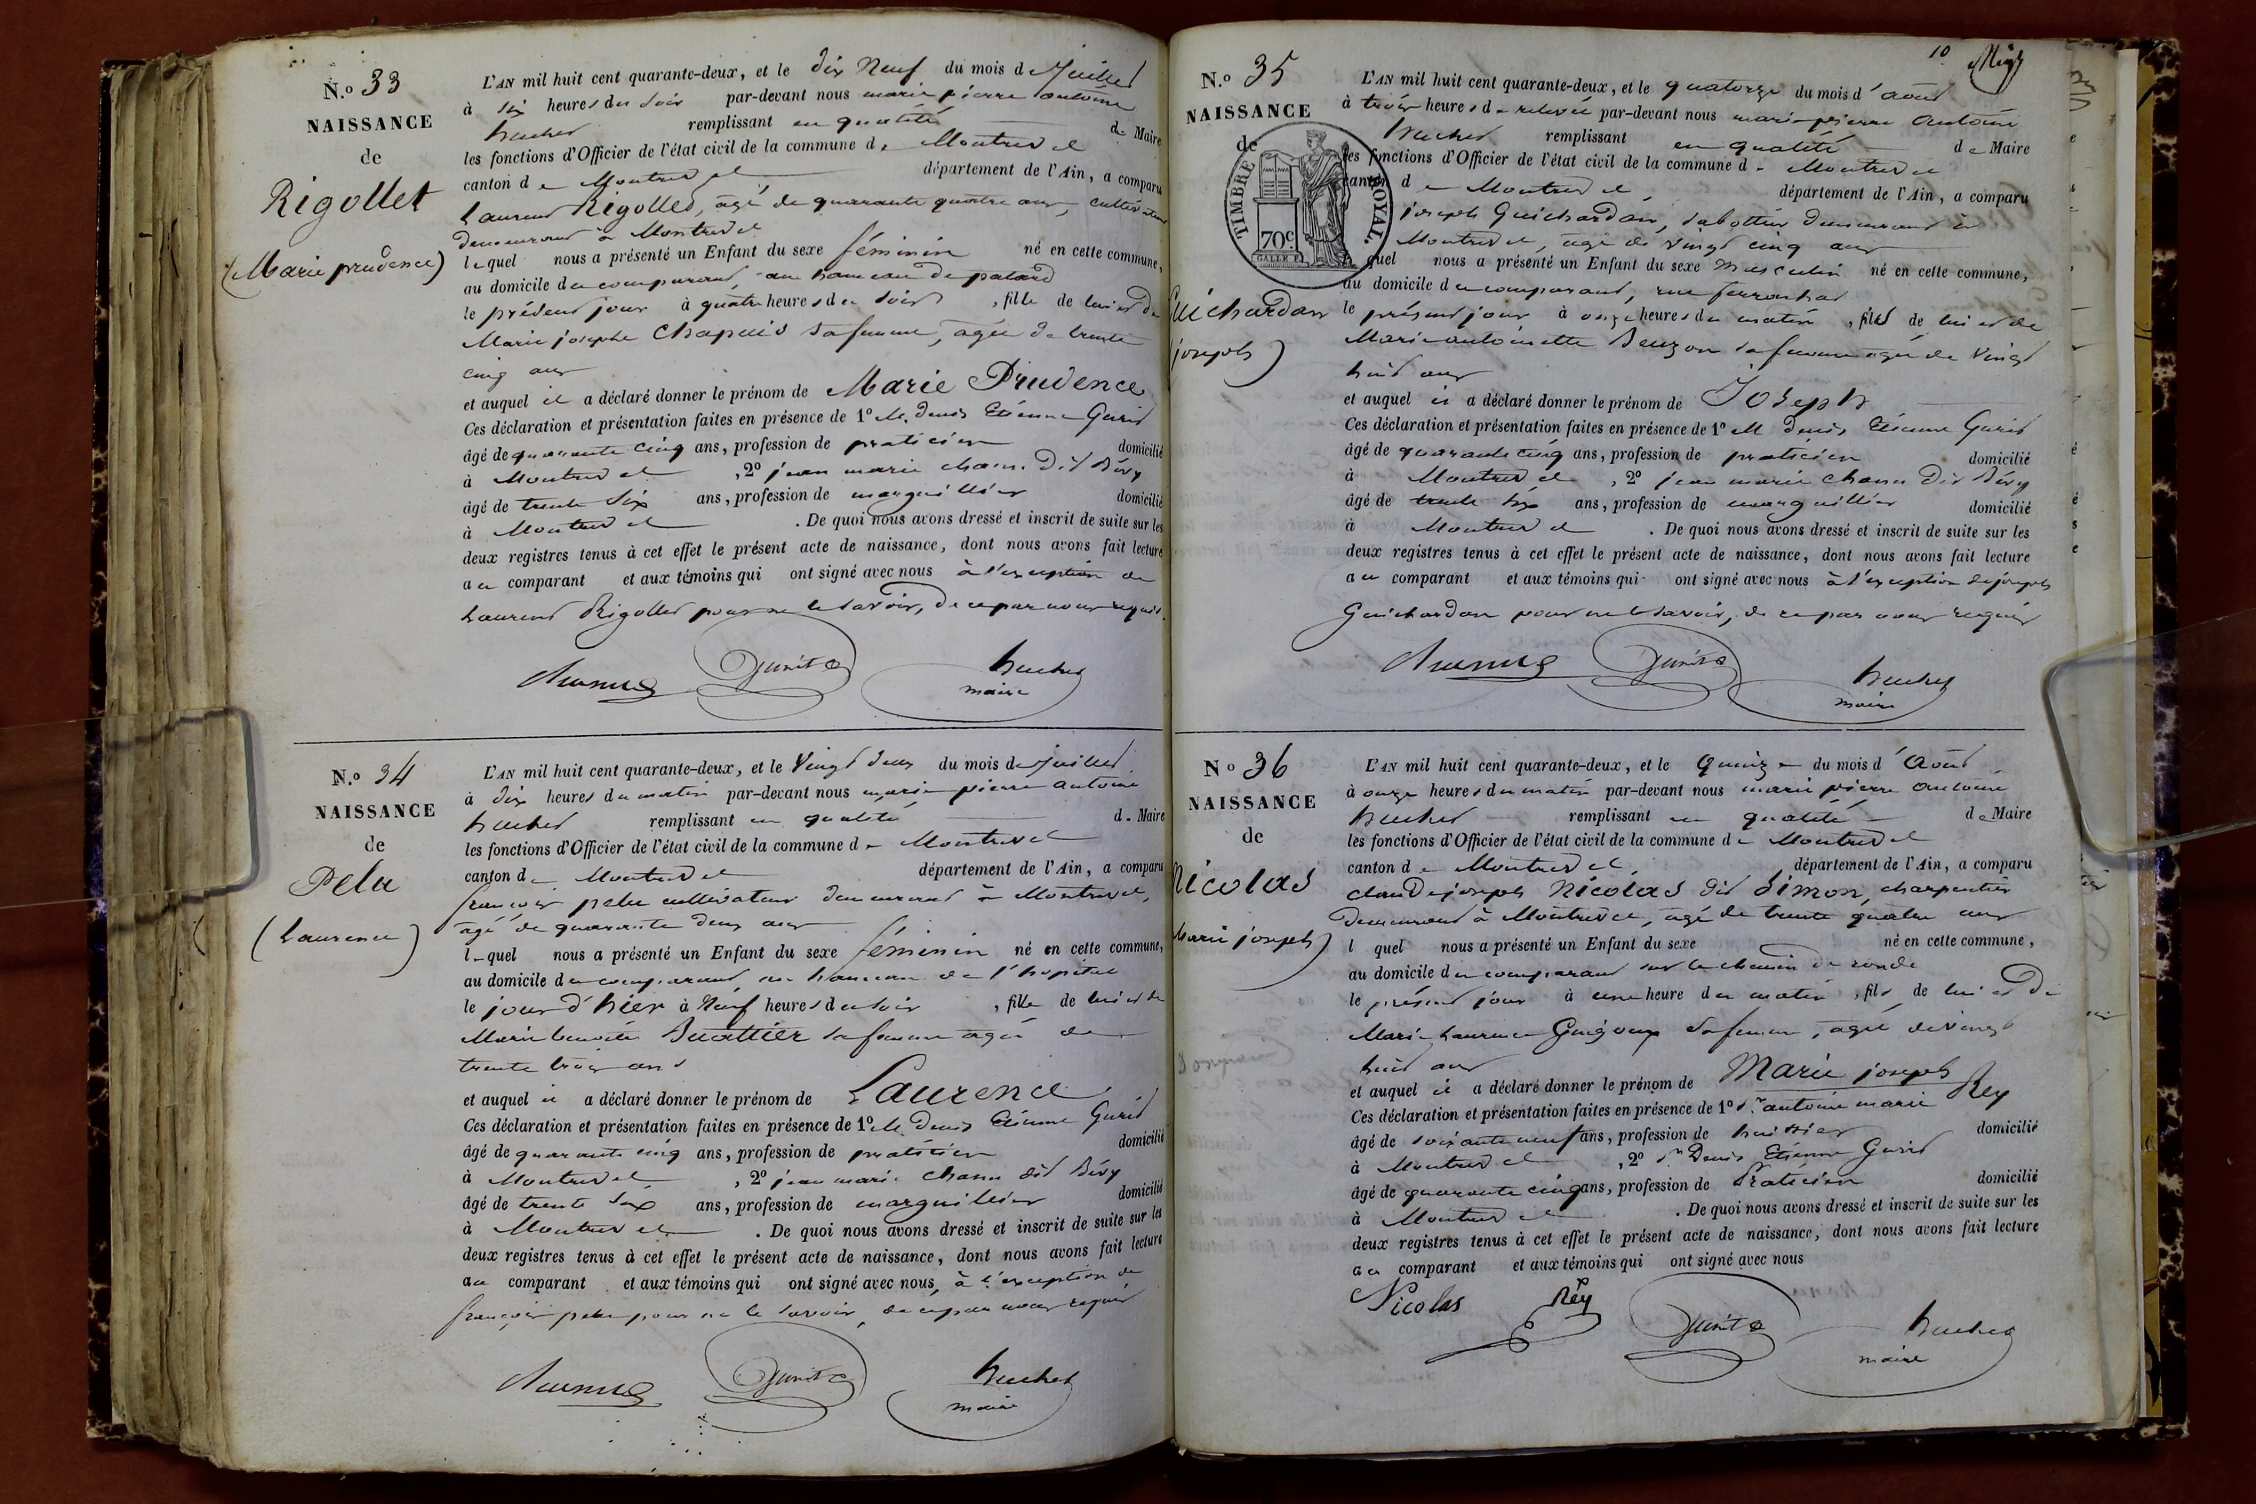 N.o 33
NAISSANCE
de
Rigollet
(Marie prudence)
L'AN mil huit cent quarante-deux, et le dix Neuf du mois de Juillet
à six heures du soir par-devant nous marie pierre antoine
huchet remplissant en qualité de Maire
les fonctions d'Officier de l'état civil de la commune de Montrevel
canton de Montrevel département de l'Ain, a comparu
Laurent Rigollet, agé de quarante quatre ans, cultivateur
demeurant à Montrevel
lequel nous a présenté un Enfant du sexe féminin né en cette commune,
au domicile du comparant, au hameau de
le présent jour à quatre heures du soir, fille de lui et de
Marie josephe Chapuis sa femme, agée de trente
cinq ans
et auquel il a déclaré donner le prénom de Marie Prudence
Ces déclaration et présentation faites en présence de 1.o M. Denis Etienne
âgé de quarante cinq ans, profession de praticien domicilié
à Montrevel, 2.o jean marie dit Bévy
âgé de trente six ans, profession de marguillier domicilié
à Montrevel. De quoi nous avons dressé et inscrit de suite sur les
deux registres tenus à cet effet le présent acte de naissance, dont nous avons fait lecture
au comparant et aux témoins qui ont signé avec nous à l'exception de
Laurent Rigollet pour ne le savoir, de ce par nous requis.
huchet
maire
N.o 34
NAISSANCE
de
Pelu
(Laurence)
L'AN mil huit cent quarante-deux, et le vingt deux du mois de juillet
à dix heures du matin par-devant nous marie pierre antoine
huchet remplissant en qualité de Maire
les fonctions d'Officier de l'état civil de la commune de Montrevel
canton de Montrevel département de l'Ain, a comparu
françois pelu cultivateur demeurant à Montrevel,
agé de quarante deux ans
lequel nous a présenté un Enfant du sexe féminin né en cette commune,
au domicile du comparant au hameau de l'hopital
le jour d'hier à Neuf heures du soir, fille de lui et de
Marie benoite Buattier sa femme agée de
trente trois ans
et auquel il a déclaré donner le prénom de Laurence
Ces déclaration et présentation faites en présence de 1.o M. Denis Etienne
âgé de quarante cinq ans, profession de praticien domicilié
à Montrevel, 2.o jean marie dit Bévy
âgé de trente six ans, profession de marguillier domicilié
à Montrevel. De quoi nous avons dressé et inscrit de suite sur les
deux registres tenus à cet effet le présent acte de naissance, dont nous avons fait lecture
au comparant et aux témoins qui ont signé avec nous, à l'exception de
françois pelu pour ne le savoir, de ce par nous requis
huchet
maire
10
N.o 35
NAISSANCE
de
TIMBRE ROYAL.
70c.
Guichardon
(joseph)
L'AN mil huit cent quarante-deux, et le quatorze du mois d'aout
à trois heures de relevée par-devant nous marie pierre antoine
huchet remplissant en qualité de Maire
les fonctions d'Officier de l'état civil de la commune de Montrevel
canton de Montrevel département de l'Ain, a comparu
joseph Guichardon, sabottier demeurant à
Montrevel, agé de vingt cinq ans
lequel nous a présenté un Enfant du sexe masculin né en cette commune,
au domicile du comparant, rue
le présent jour à onze heures du matin, fils de lui et de
Marie antoinette sa femme agée de vingt
huit ans
et auquel il a déclaré donner le prénom de Joseph
Ces déclaration et présentation faites en présence de 1.o M Denis Etienne
âgé de quarante cinq ans, profession de praticien domicilié
à Montrevel, 2.o jean marie dit Bévy
âgé de trente six ans, profession de marguillier domicilié
à Montrevel. De quoi nous avons dressé et inscrit de suite sur les
deux registres tenus à cet effet le présent acte de naissance, dont nous avons fait lecture
au comparant et aux témoins qui ont signé avec nous à l'exception de joseph
Guichardon pour ne le savoir, de ce par nous requis
huchet
maire
No 36
NAISSANCE
de
Nicolas
(Marie joseph)
L'AN mil huit cent quarante-deux, et le quinze du mois d'Août
à onze heures du matin par-devant nous marie pierre antoine
huchet remplissant en qualité de Maire
les fonctions d'Officier de l'état civil de la commune de Montrevel
canton de Montrevel département de l'Ain, a comparu
Claude joseph Nicolas dit Simon, charpentier
demeurant à Montrevel, agé de trente quatre ans
l quel nous a présenté un Enfant du sexe né en cette commune,
au domicile du comparant sur le chemin de ronde
le présent jour à une heure du matin, fils de lui et de
Marie Laurence sa femme, agée de vingt
huit ans
et auquel il a déclaré donner le prénom de Marie joseph
Ces déclaration et présentation faites en présence de 1.o Sr antoine marie Rey
âgé de soixante neuf ans, profession de huissier domicilié
à Montrevel, 2.o Sr Denis Etienne
âgé de quarante cinq ans, profession de Praticien domicilié
à Montrevel. De quoi nous avons dressé et inscrit de suite sur les
deux registres tenus à cet effet le présent acte de naissance, dont nous avons fait lecture
au comparant et aux témoins qui ont signé avec nous
Nicolas Rey huchet
maire